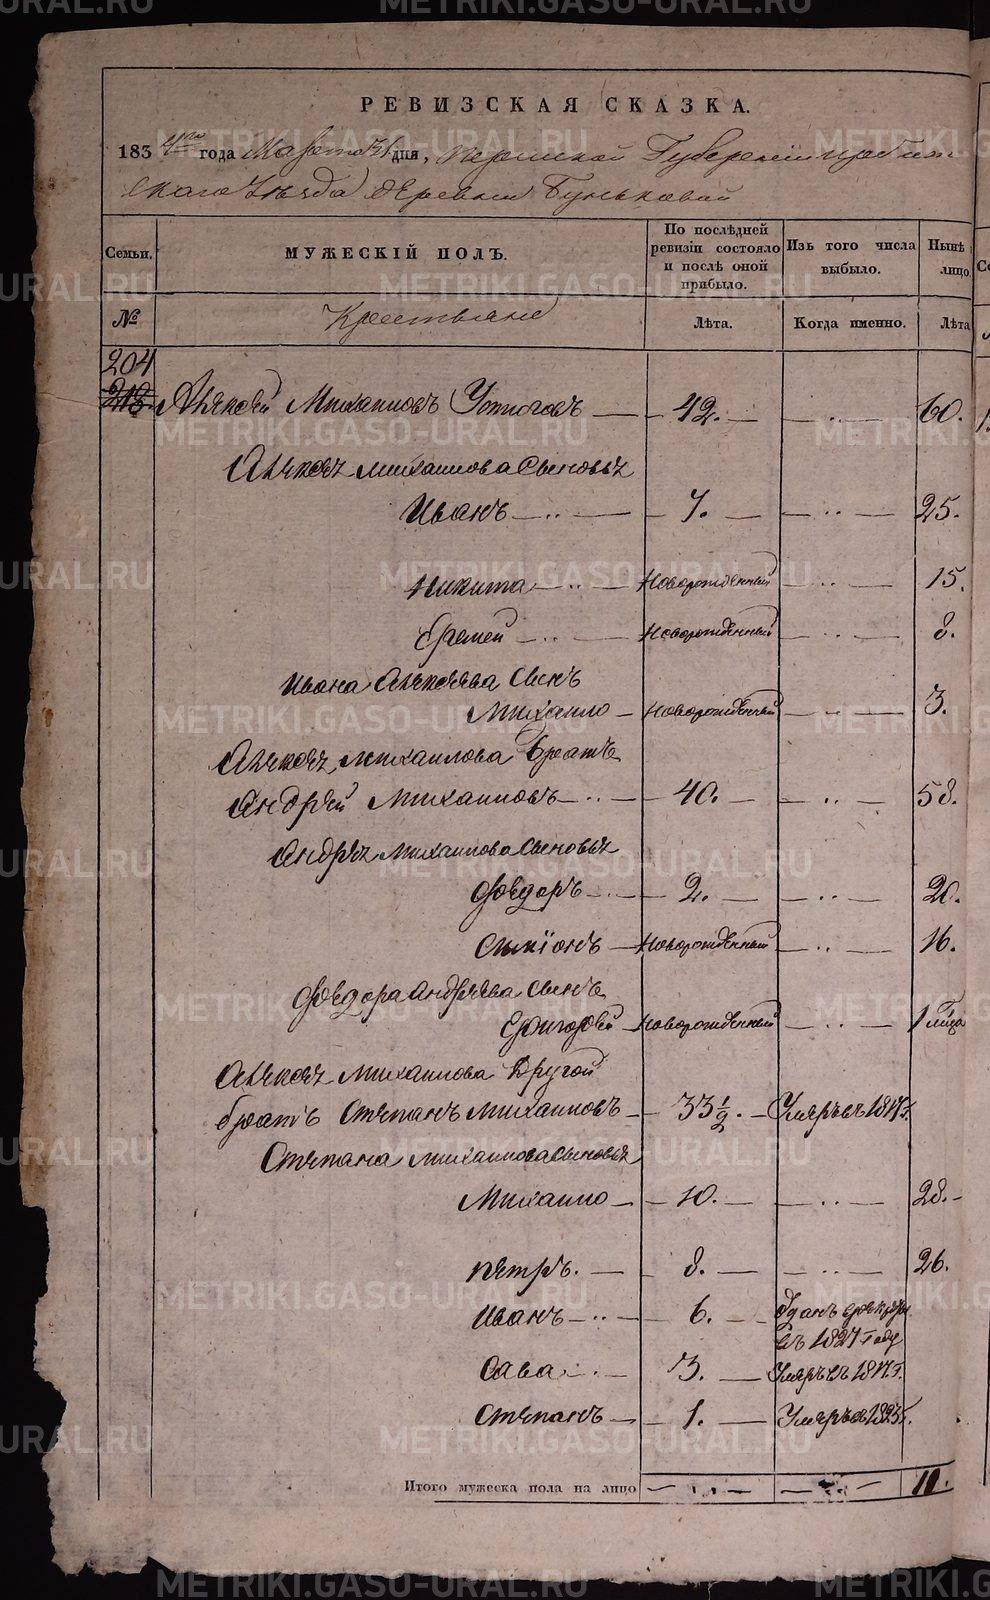 РЕВИЗСКАЯ СКАЗКА.
1834го года Марта дня, Пермской Губернии Ирбит-
скаго Уезда деревни Буньковой
Семьи. МУЖЕСКІЙ ПОЛЪ. По послѣдней ревизіи состояло и послѣ оной прибыло. Изъ того числа выбыло. Нынѣ лицо
№ Крестьяне Лѣта. Когда именно. Лѣта
204
Алексей Михаиловъ Устюговъ 42. 60.
Алексея Михаилова Сыновья
Иванъ 7. 25.
Никита Новорожденный 15.
Еремей Новорожденный 8.
Ивана Алексеева Сынъ
Михаило Новорожденный 3.
Алексея Михаилова Братъ
Андрей Михаиловъ 40. 58.
Андрея Михаилова Сыновья
Фёдоръ 2. 20.
Симіонъ Новорожденный 16.
Федора Андреева Сынъ
Новорожденный 1 года
Алексея Михаилова Другой
братъ Степанъ Михаиловъ 33 1/2. Умеръ въ 1817 г.
Степана Михаилова Сыновья
Михаило 10. 28.
Петръ. 8. 26.
Иванъ 6. Зданъ в рекруты
въ 1827 году
Сава 3. Умеръ въ 1817 г.
Степанъ 1. Умеръ в 1823 г.
Итого мужеска пола на лицо 11.
METRIKI.GASO-URAL.RU